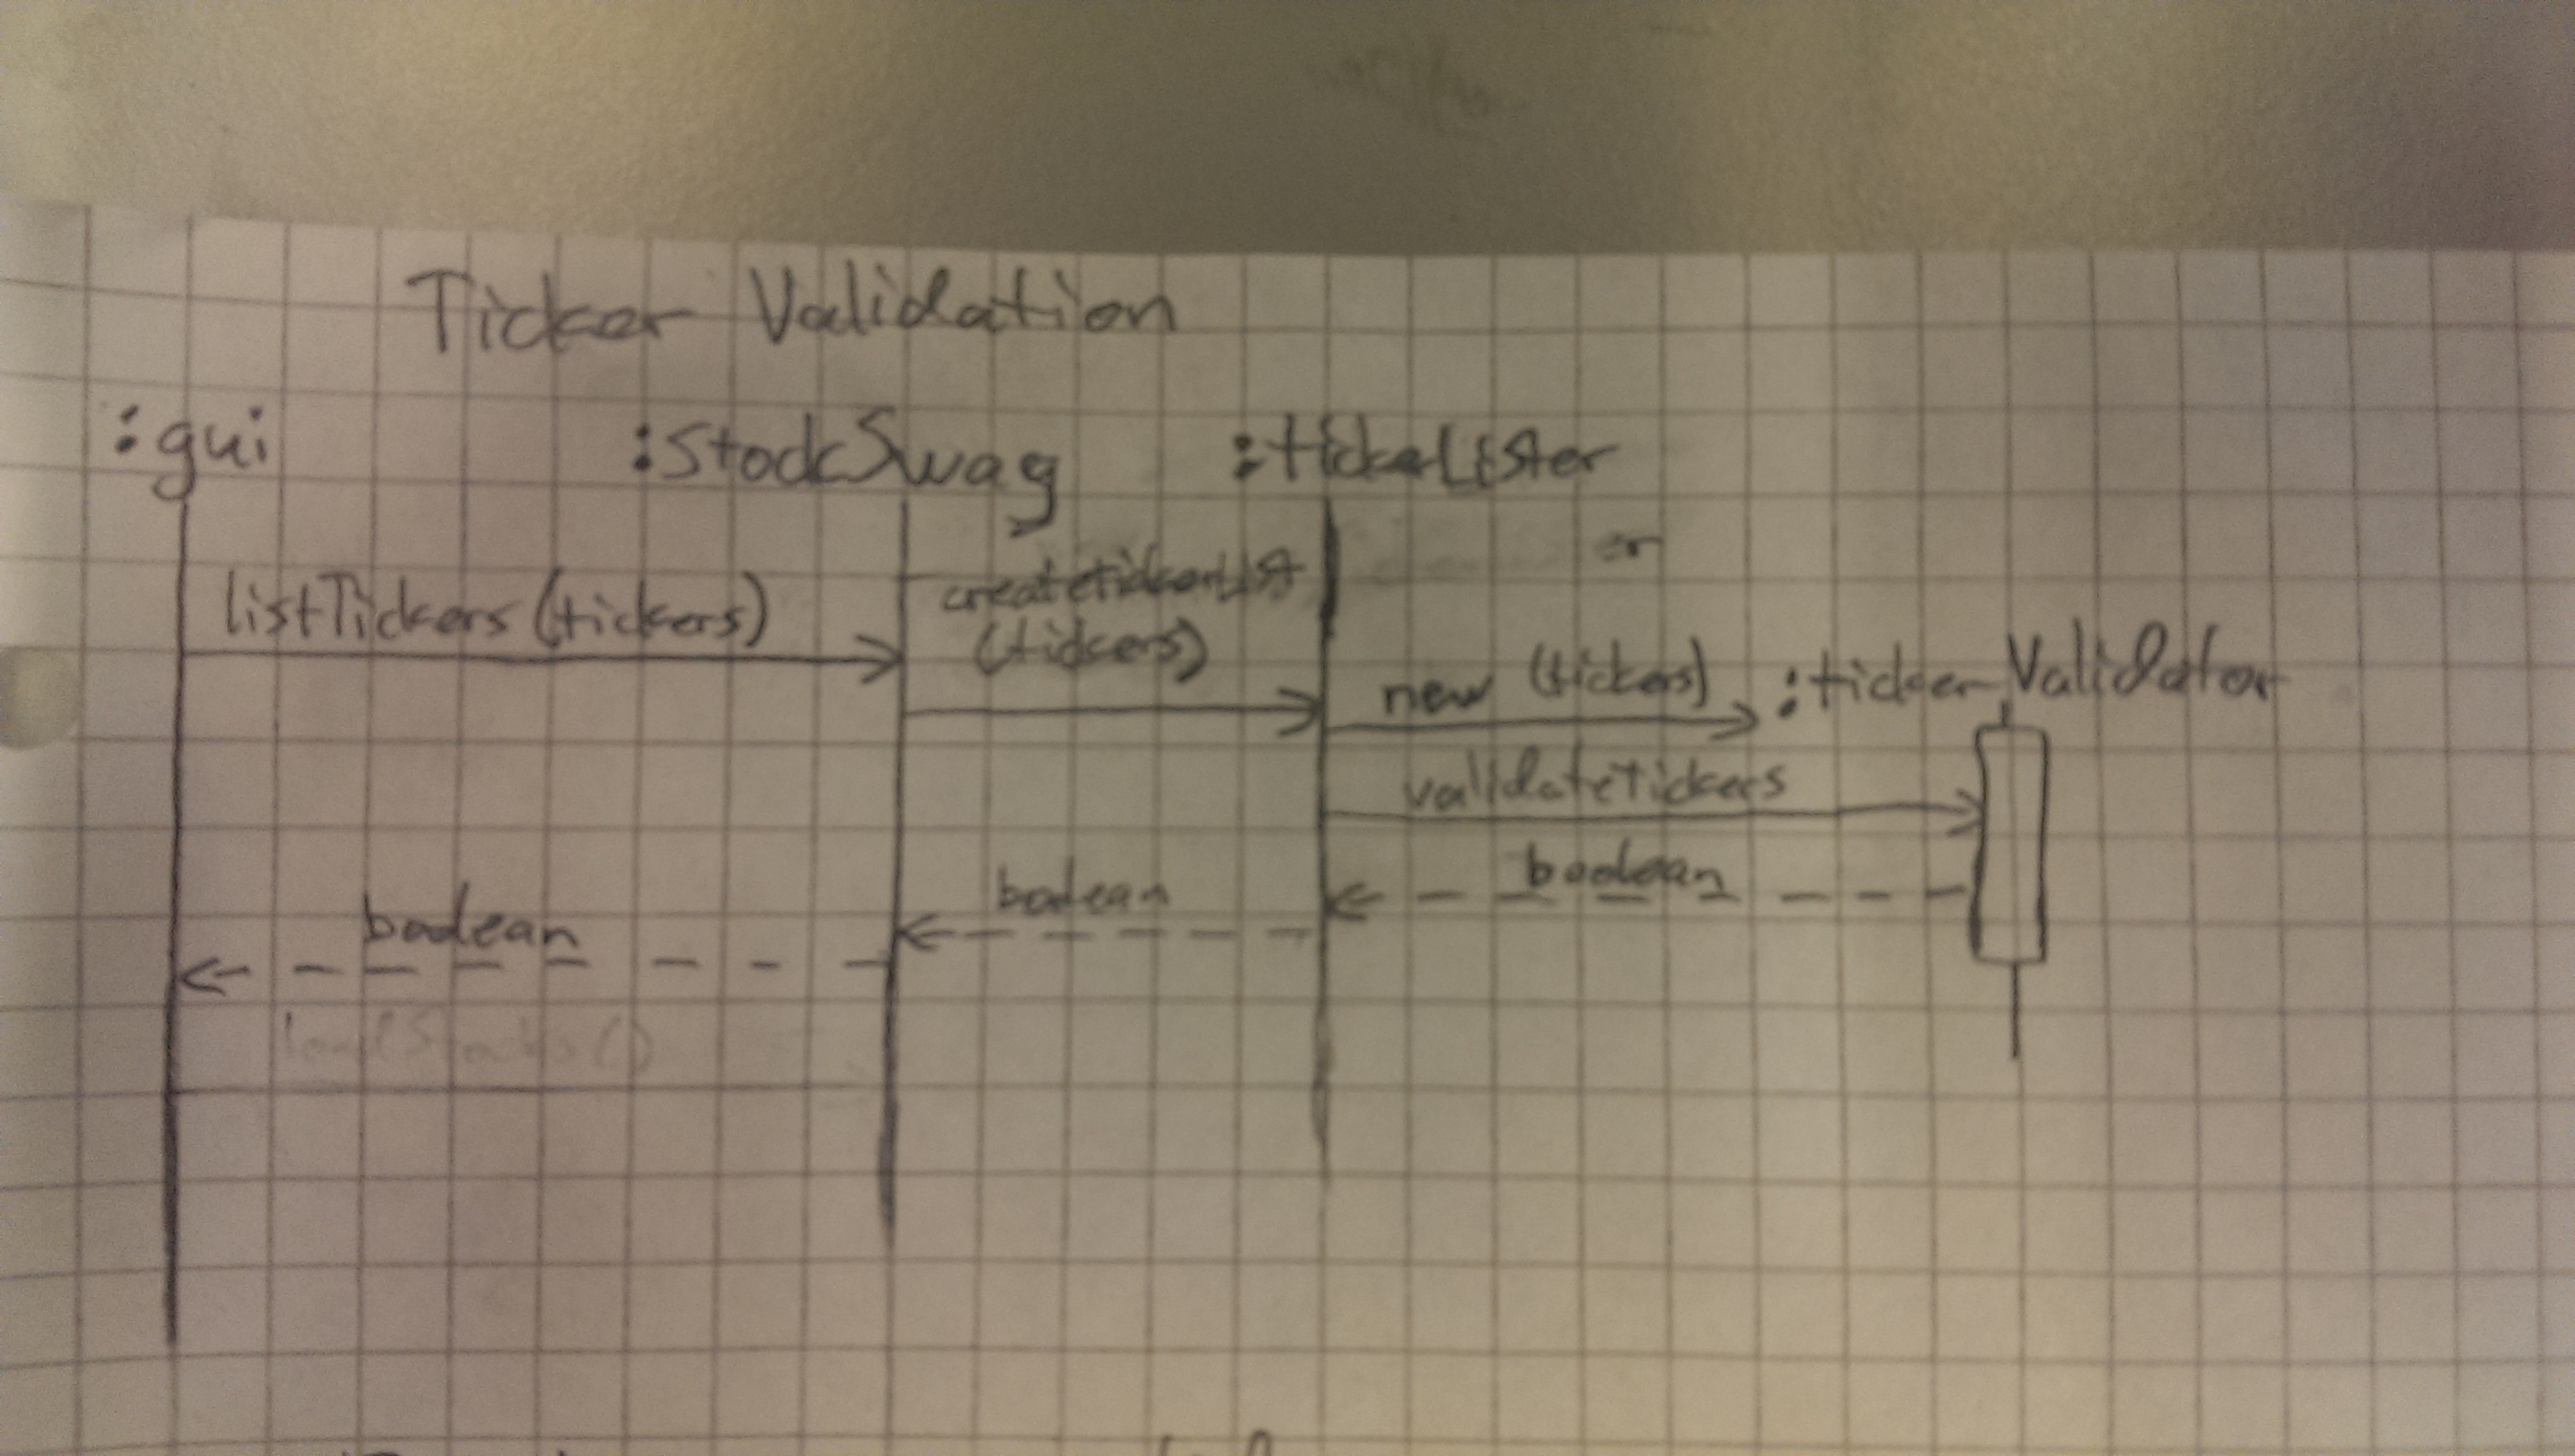 Ticker Validation
:gui :StockSwag :tickeLister
er
listTickers (tickers) createtickerList
(tickers)
new (tickers) :ticker Validator
validateTickers
boolean boolean boolean
loadStocks()